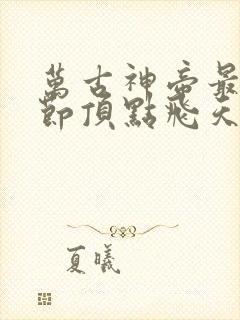 萬古神帝最
節頂點飛天
夏曦